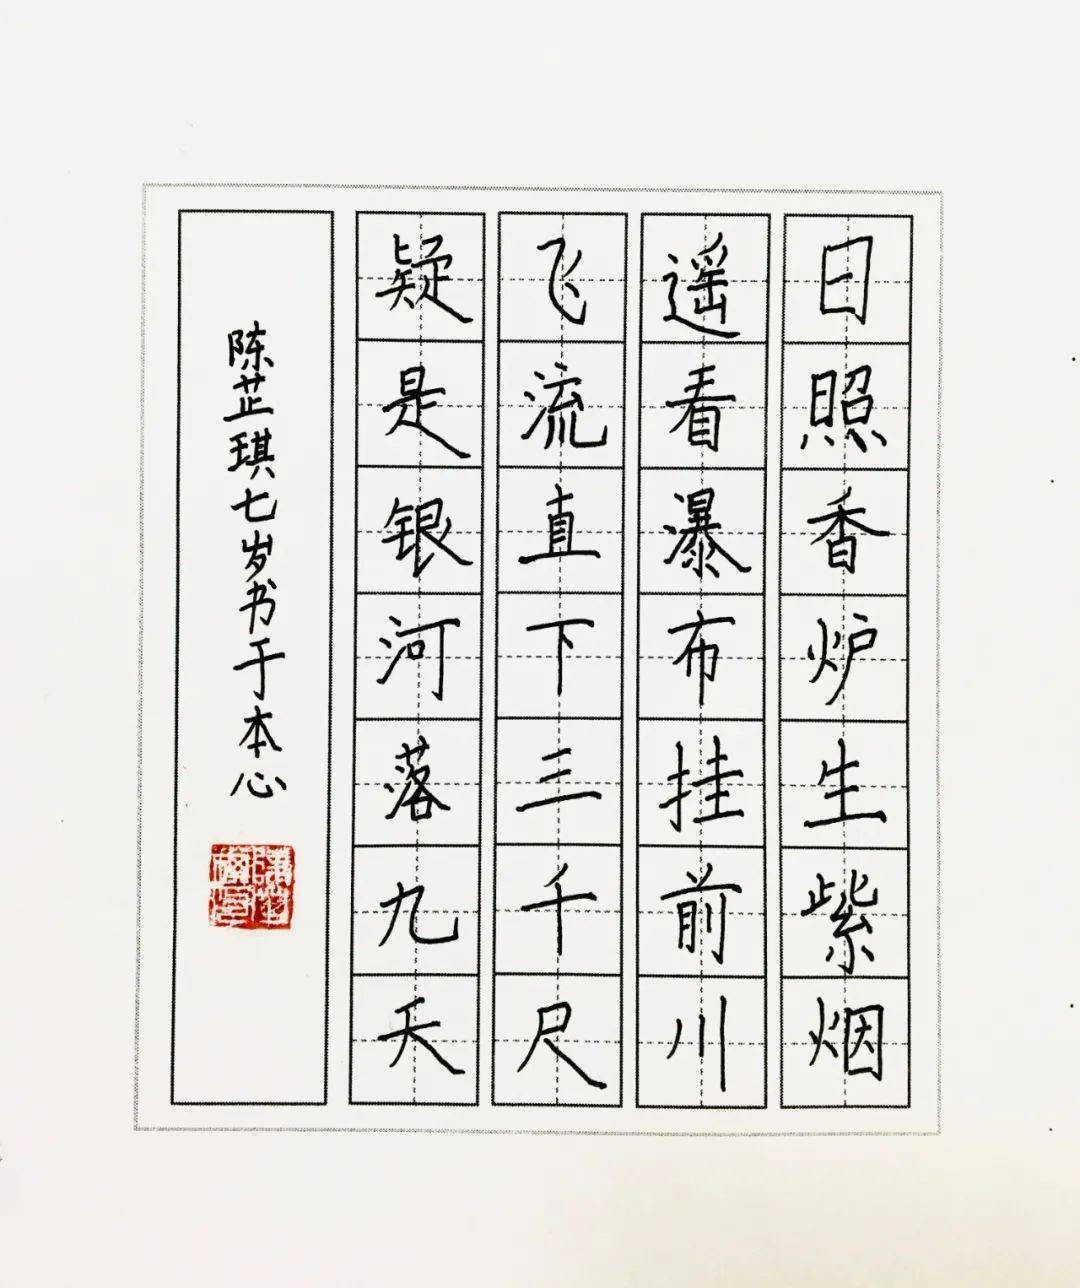 日照香炉生紫烟
遥看瀑布挂前川
飞流直下三千尺
疑是银河落九天
陈芷琪七岁书于本心